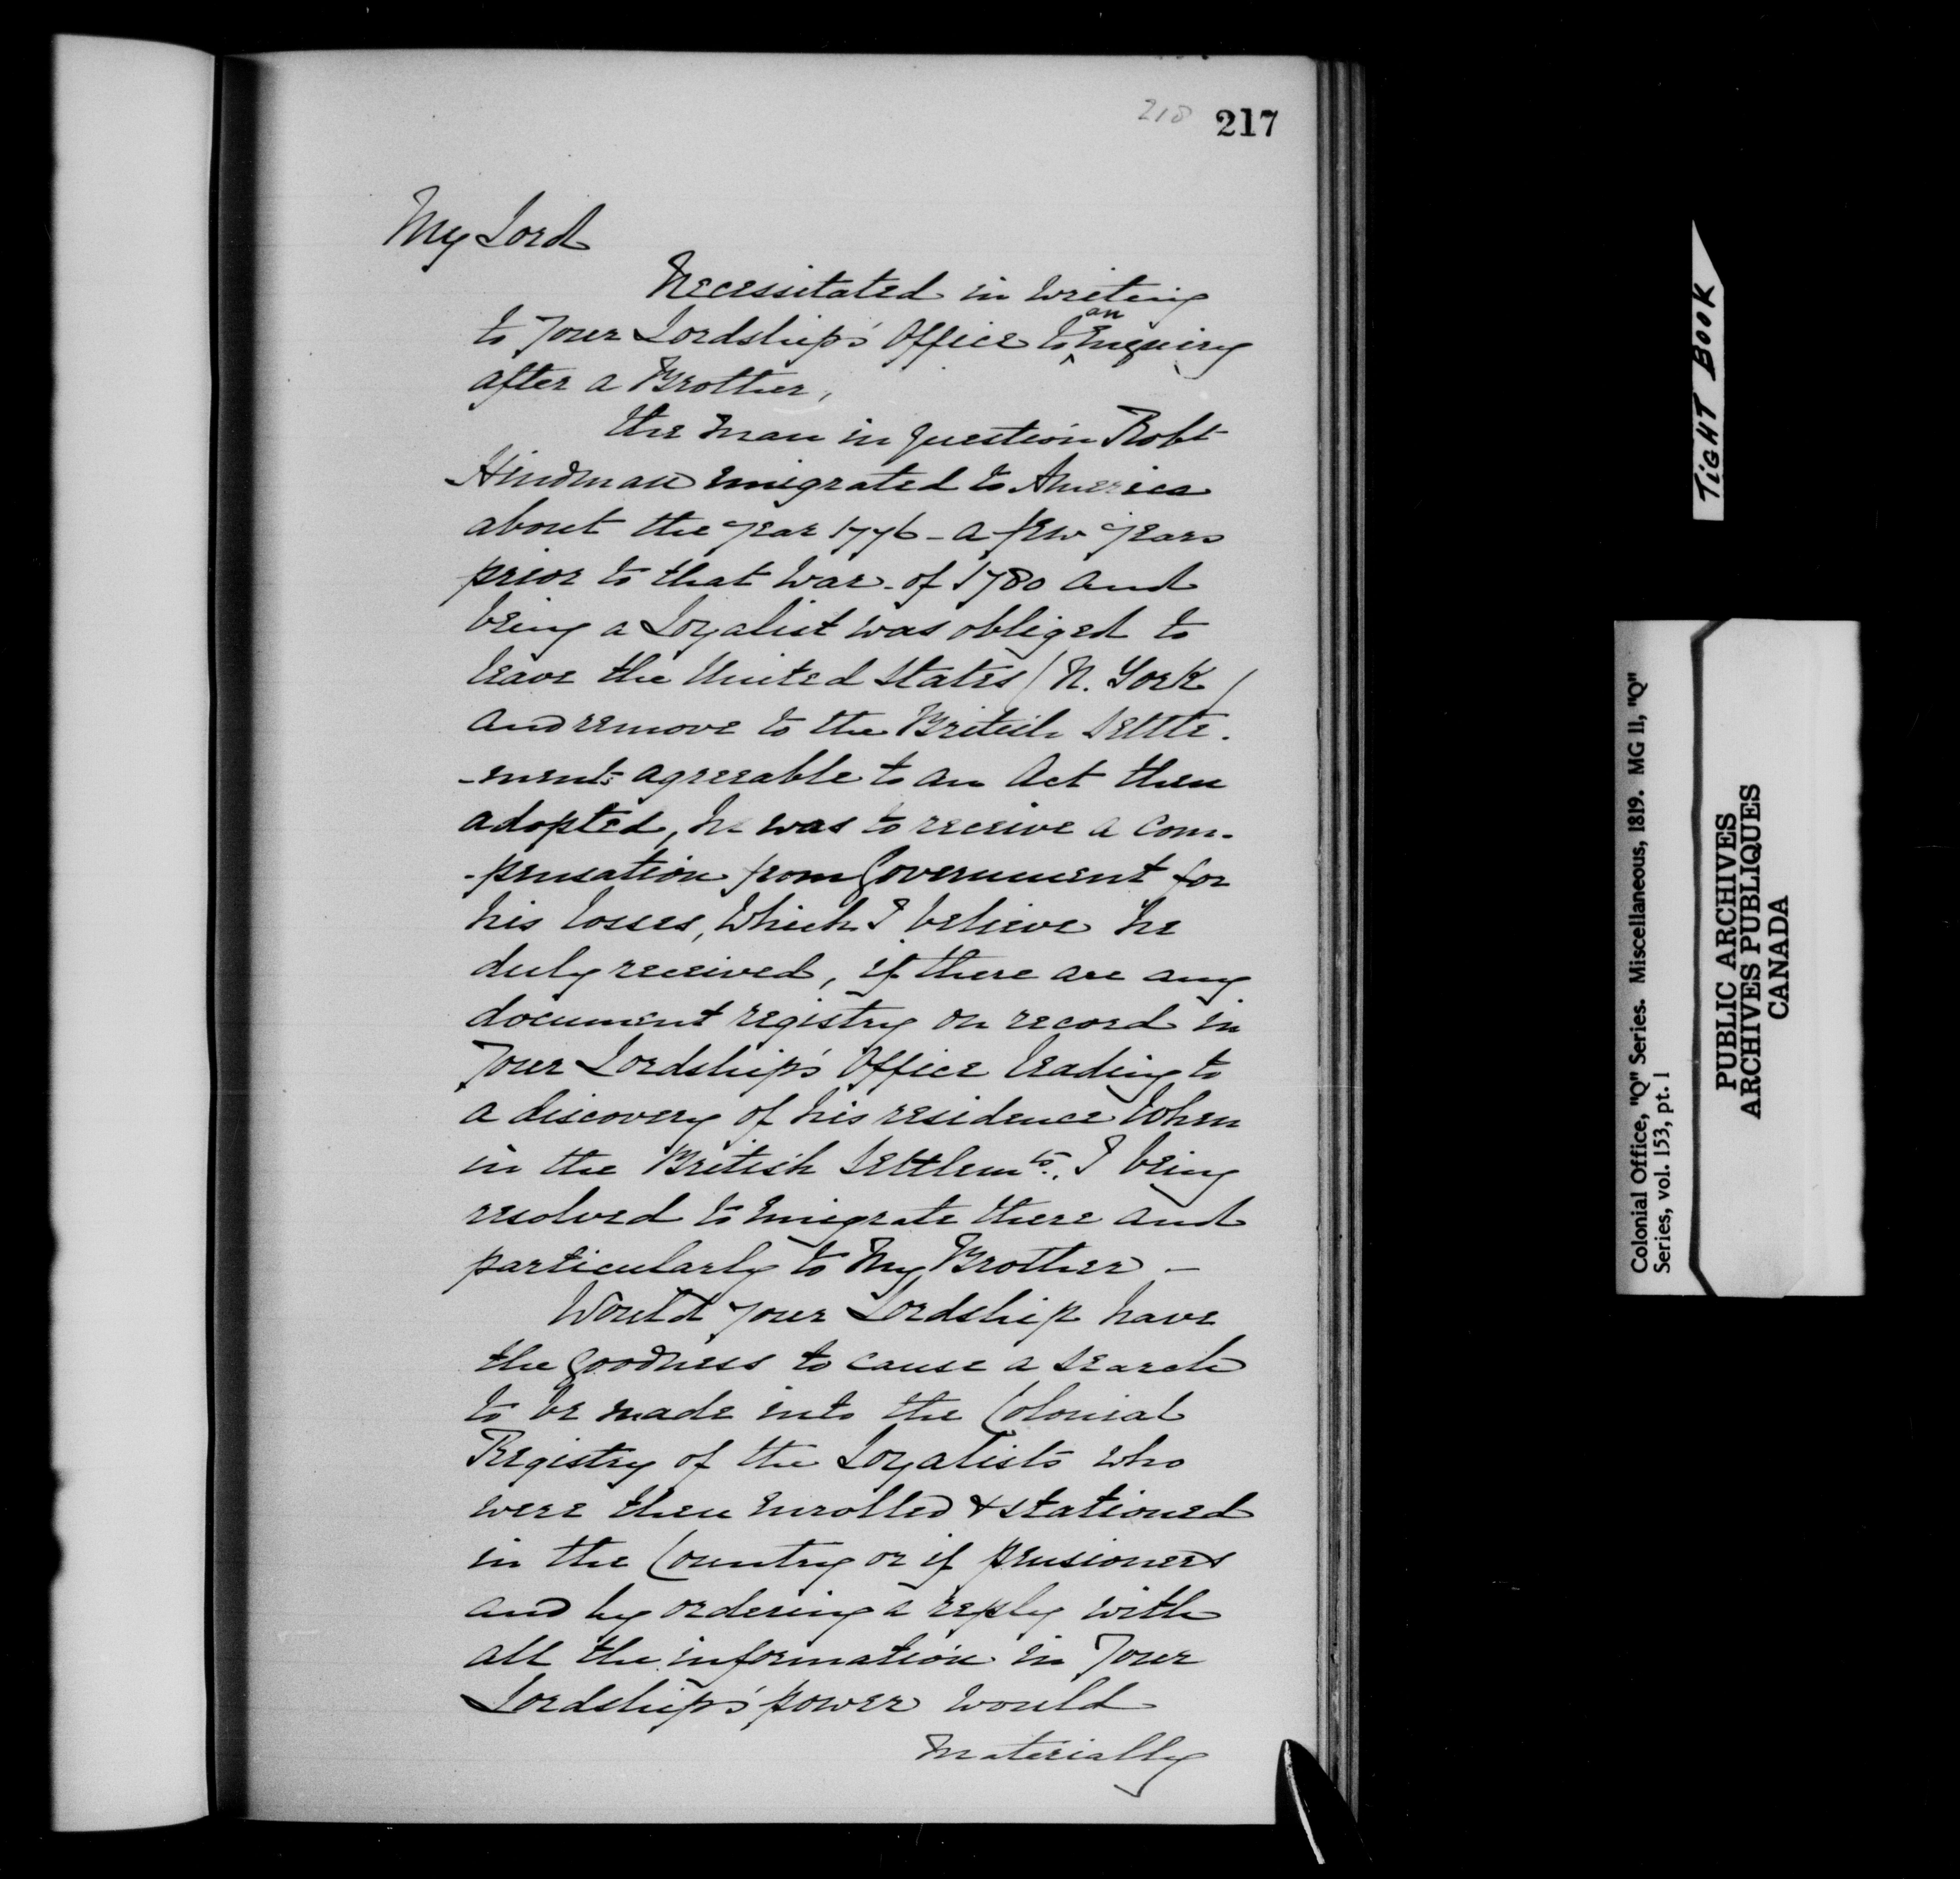 218 217
My Lord
Necessitated in writing
to Your Lordship's Office to an Enquiry
after a Brother,
the man in question Robt
Hindman emigrated to America
about the year 1776 - a few years
prior to that war - of 1780 and
being a Loyalist was obliged to
leave the United States (N. York)
and remove to the British Settle-
-ments agreeable to an Act then
adopted, he was to receive a com-
-pensation from Government for
his losses, which I believe he
duly received, if there are any
document registry on record in
Your Lordship's Office leading to
a discovery of his residence when
in the British Settlemts. I being
resolved to Emigrate there and
particularly to my Brother -
Would your Lordship have
the goodness to cause a search
to be made into the Colonial
Registry of the Loyalists who
were then enrolled & stationed
in the Country or if pensioners
and by ordering a reply with
all the information in Your
Lordship's power would
materially
TIGHT BOOK
Colonial Office, "Q" Series. Miscellaneous, 1819. MG 11, "Q"
Series, vol. 153, pt. 1
PUBLIC ARCHIVES
ARCHIVES PUBLIQUES
CANADA